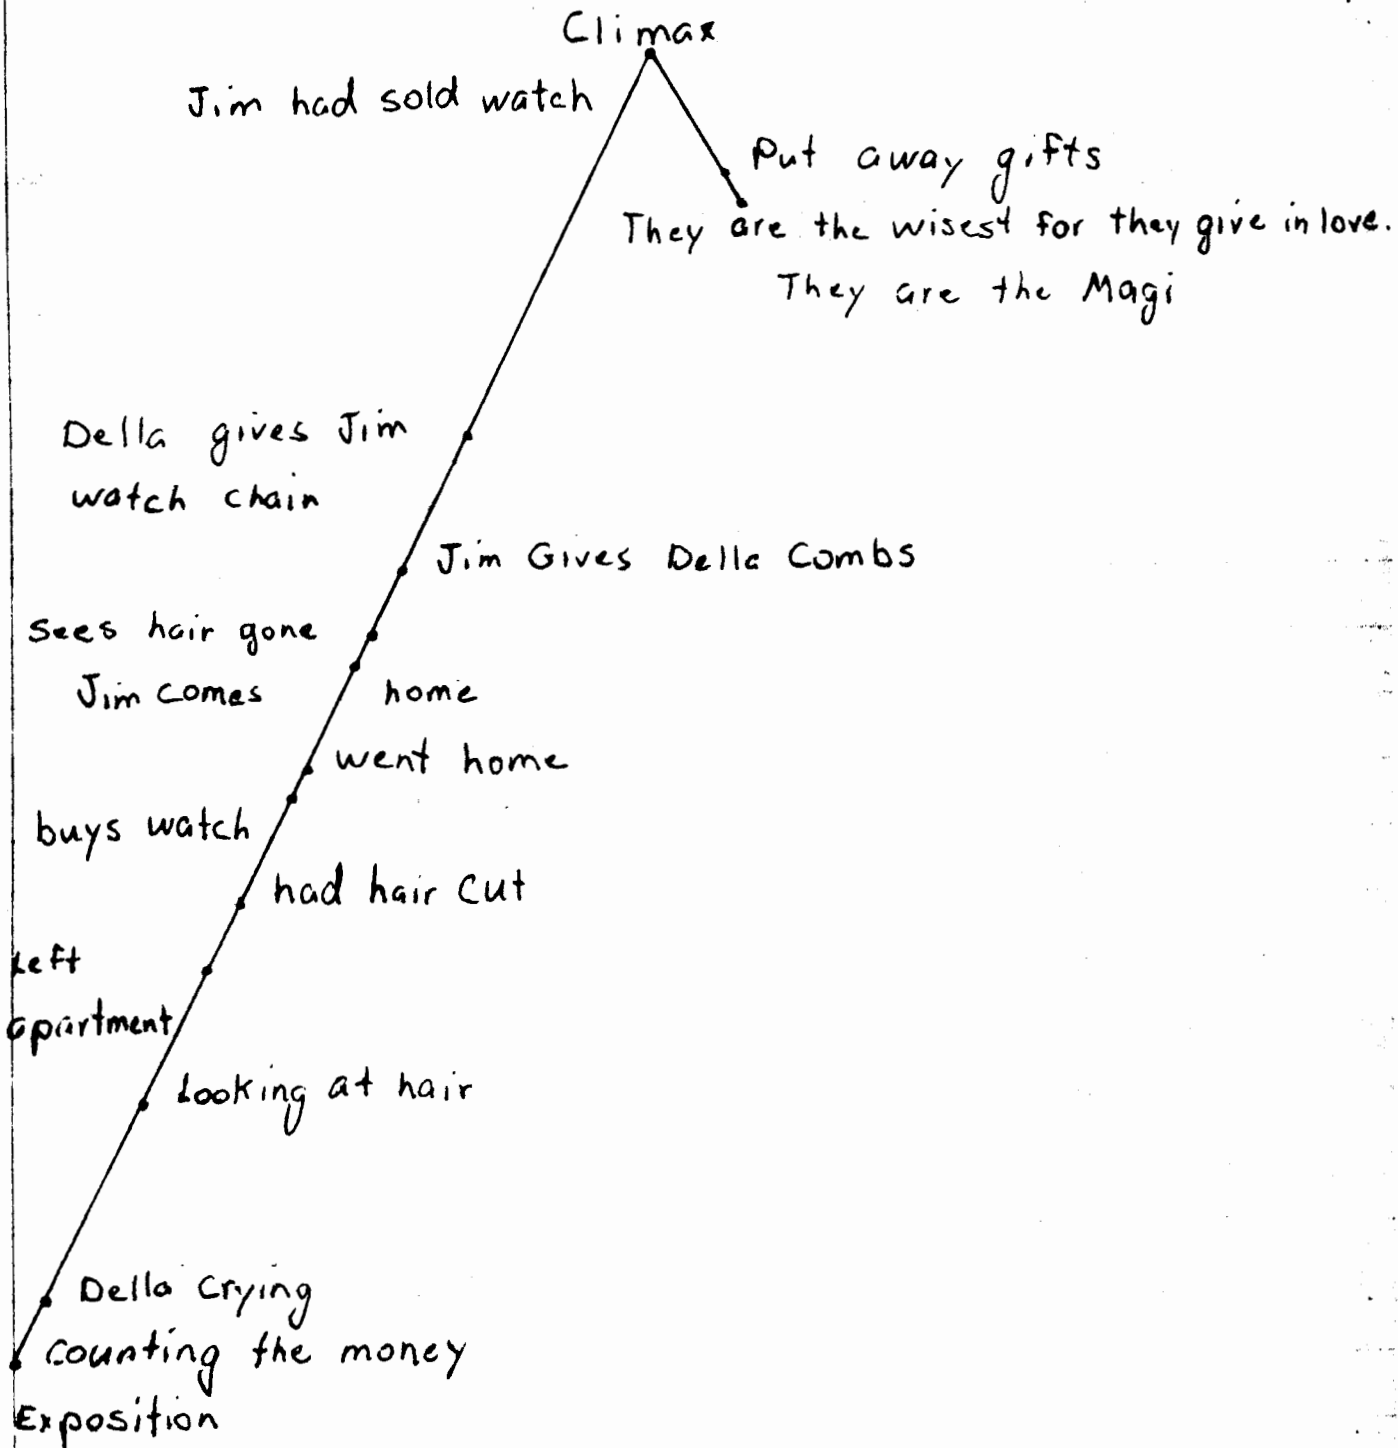 Climax
Jim had sold watch
Put away gifts
They are the wisest for they give in love.
They are the Magi
Della gives Jim
watch chain
Jim Gives Della Combs
Sees hair gone
Jim comes home
went home
buys watch
had hair cut
Left
apartment
Looking at hair
Della Crying
Counting the money
Exposition